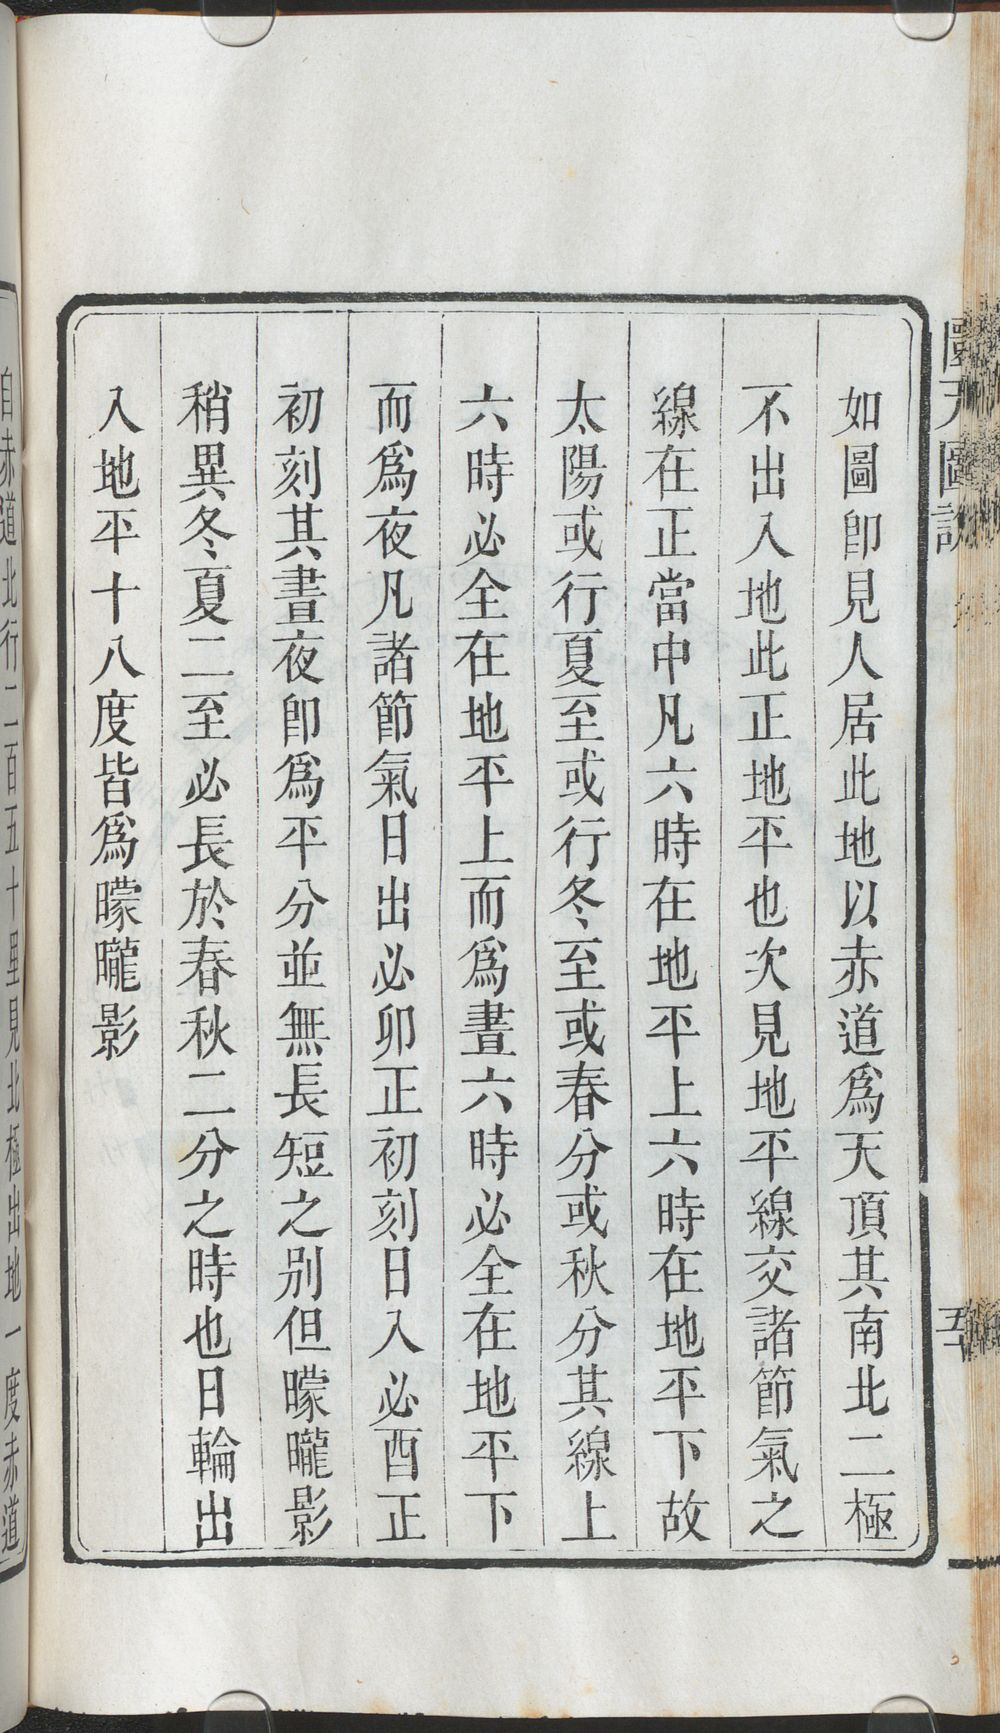 圜天圖說
五
如圖卽見人居此地以赤道爲天頂其南北二極
不出入地此正地平也次見地平線交諸節氣之
線在正當中凡六時在地平上六時在地平下故
太陽或行夏至或行冬至或春分或秋分其線上
六時必全在地平上而爲晝六時必全在地平下
而爲夜凡諸節氣日出必卯正初刻日入必酉正
初刻其晝夜卽爲平分並無長短之别但曚曨影
稍異冬夏二至必長於春秋二分之時也日輪出
入地平十八度皆爲曚曨影
自赤道北行二百五十里見北極出地一度赤道